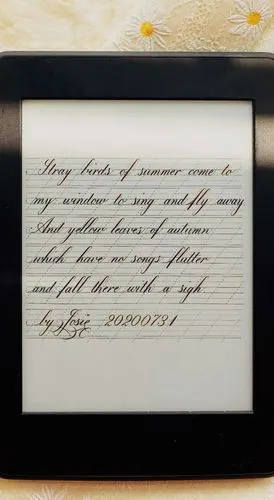 Stray birds of summer come to
my window to sing and fly away
And yellow leaves of autumn
which have no songs flutter
and fall there with a sigh
by Josie 20200731